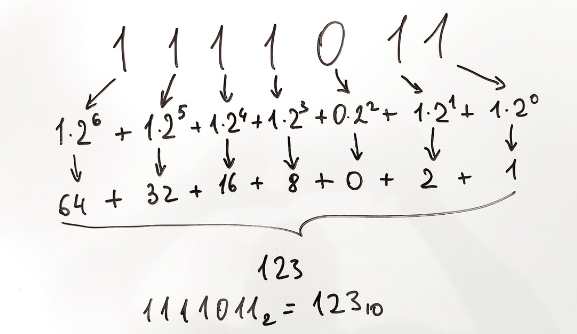 1 1 1 1 0 1 1
1·2⁶ + 1·2⁵ + 1·2⁴ + 1·2³ + 0·2² + 1·2¹ + 1·2⁰
64 + 32 + 16 + 8 + 0 + 2 + 1
123
1111011₂ = 123₁₀